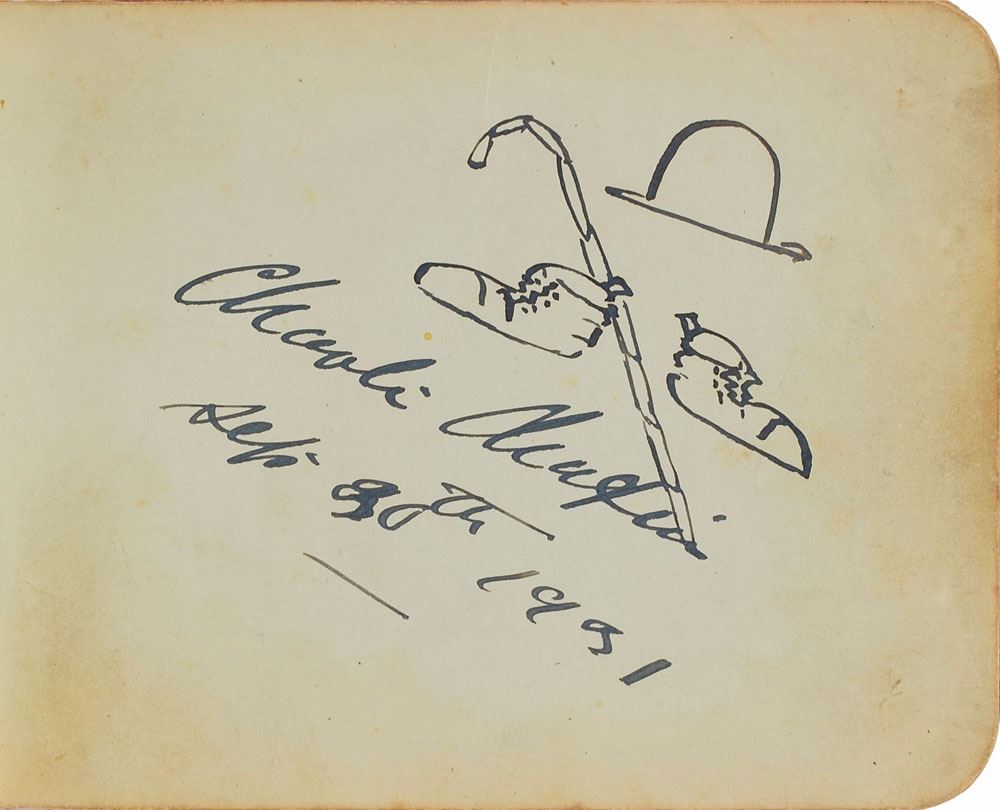 Charlie Chaplin
Sep. 30th 1931